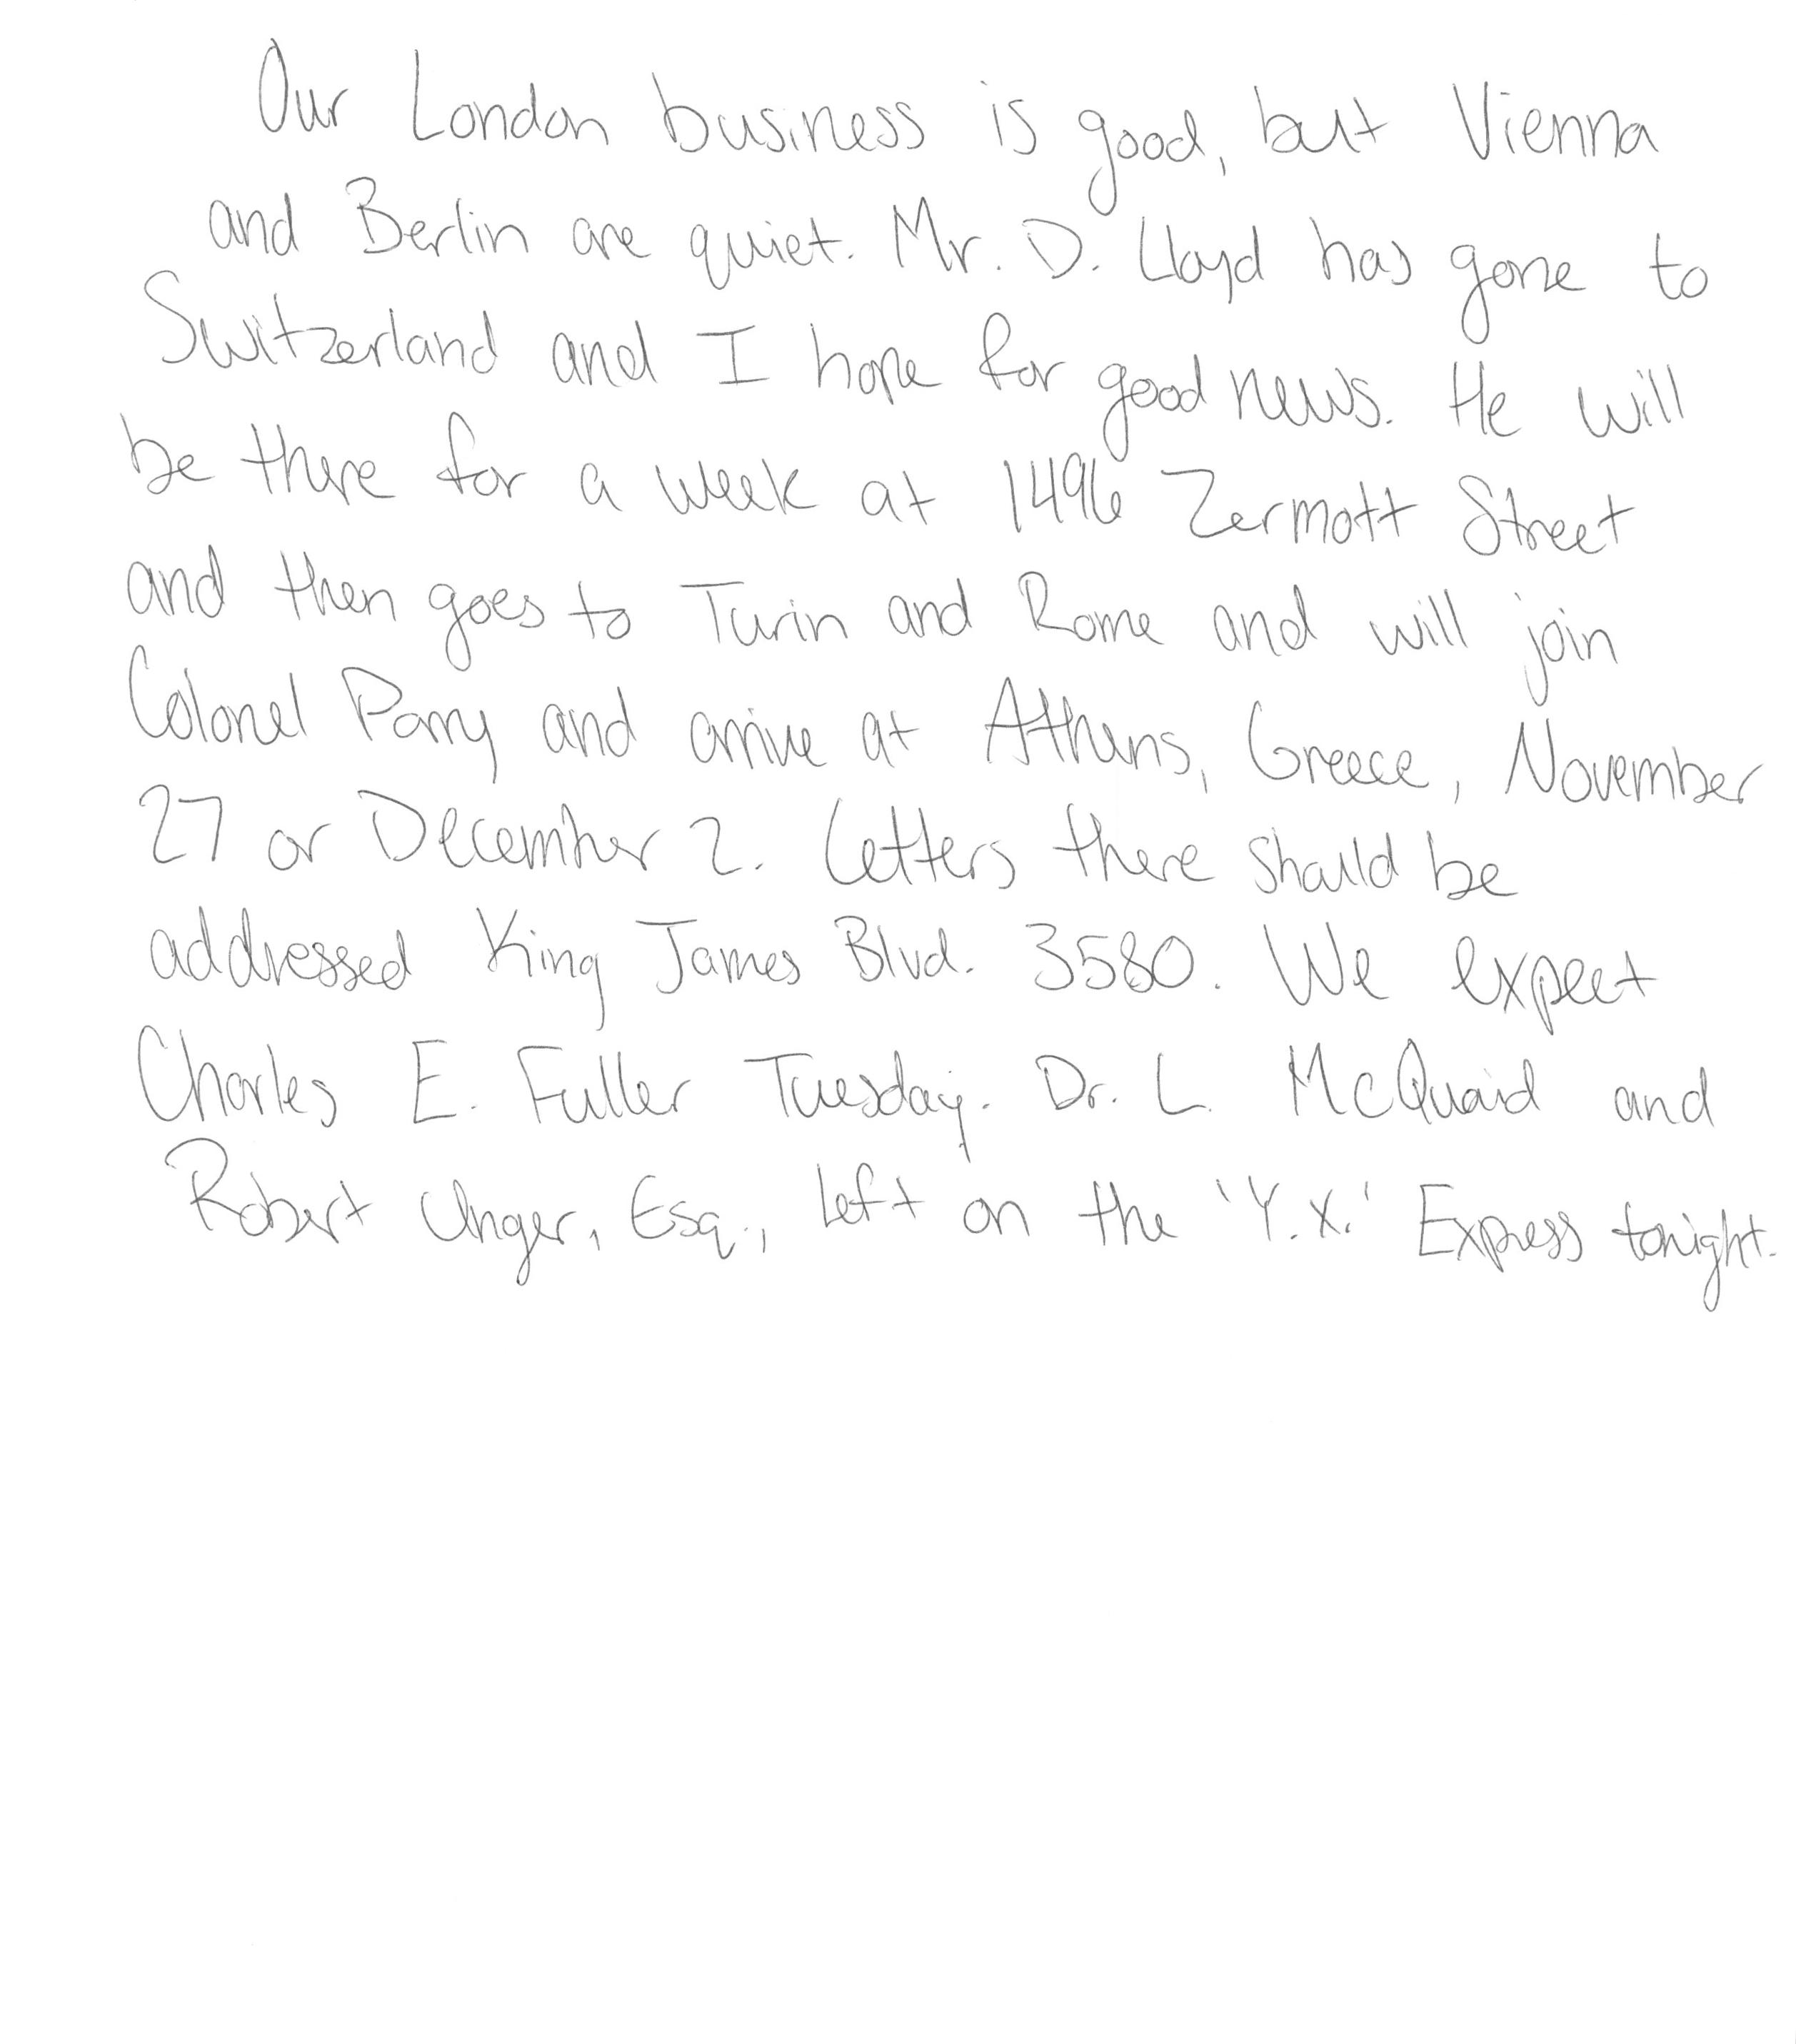 Our London business is good, but Vienna
and Berlin are quiet. Mr. D. Lloyd has gone to
Switzerland and I hope for good news. He will
be there for a week at 1496 Zermott Street
and then goes to Turin and Rome and will join
Colonel Parry and arrive at Athens, Greece, November
27 or December 2. Letters there should be
addressed King James Blvd. 3580. We expect
Charles E. Fuller Tuesday. Dr. L. McQuaid and
Robert Unger, Esq., left on the 'Y.X.' Express tonight.